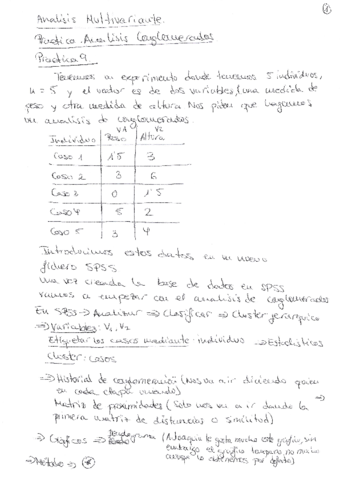 Analisis Multivariante.
Practico. Analisis Conglomerados
Practica 9.
Tenemos un experimento donde tenemos 5 individuos,
n = 5 y el vector es de dos variables (una medida de
peso y otra medida de altura Nos piden que hagamos
un analisis de conglomerados.
V1 V2
Individuo Peso Altura
Caso 1 1'5 3
Caso 2 3 6
Caso 3 0 1'5
Caso 4 5 2
Caso 5 3 4
Introducimos estos datos en un nuevo
fichero SPSS
Una vez creada la base de datos en SPSS
vamos a empezar con el analisis de conglomerados
En SPSS → Analizar ⇒ Clasificar ⇒ Cluster jerarquico
⇒ Variables: V1, V2
Etiquetar los casos mediante: individuo → Estadisticos
Cluster: casos
⇒ Historial de conglomeración (Nos va a ir diciendo quien
en cada etapa
Matriz de proximidades (Solo nos va a ir dando la ⇒
primera matriz de distancias o similitud)
⇒ Graficos ⇒ Dendograma (Aunque le gusta mucho este grafico, sin
embargo el grafico tempano, no
por defecto)
⇒ Metodo ⇒ *